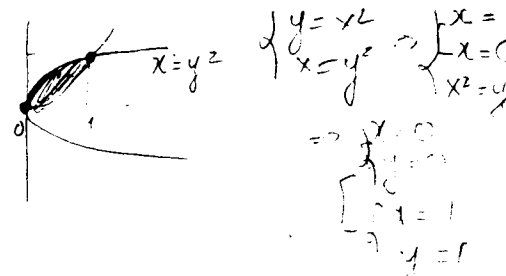 x = y²
0
1
{ y = x²
x = y²
⇒ { x =
x = 0
x² = y
⇒ x = 0
y = 0
x = 1
y = 1